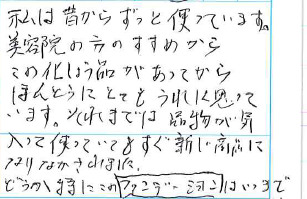 私は昔からずっと使っています。
美容院の方のすすめから
この化しょう品があってから
ほんとうにとてもうれしく思って
います。それまでは品物が気
入って使っていてもすぐ新しい商品に
なりなかされました。
どうか特にこのファンデーションはいつまで